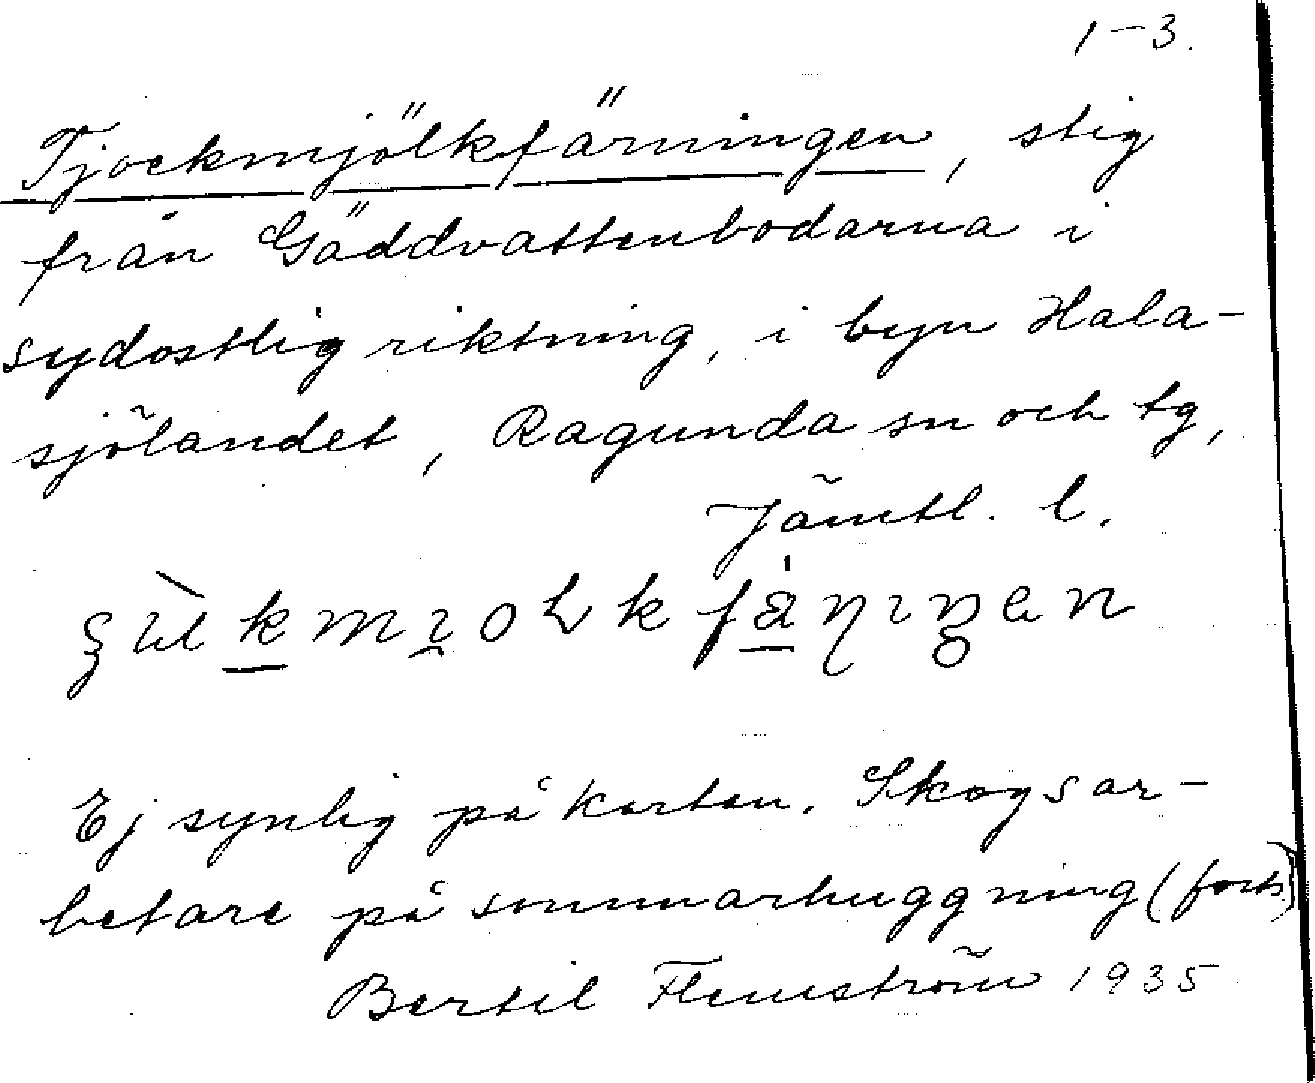 1-3.
Tjockmjölkfärningen, stig
från Gäddvattenbodarna i
sydostlig riktning, i byn Hala-
sjölandet, Ragunda sn och tg,
Jämtl. l.
Ej synlig på kartan. Skogsar-
betare på sommarhuggning (forts.)
Bertil Flemström 1935